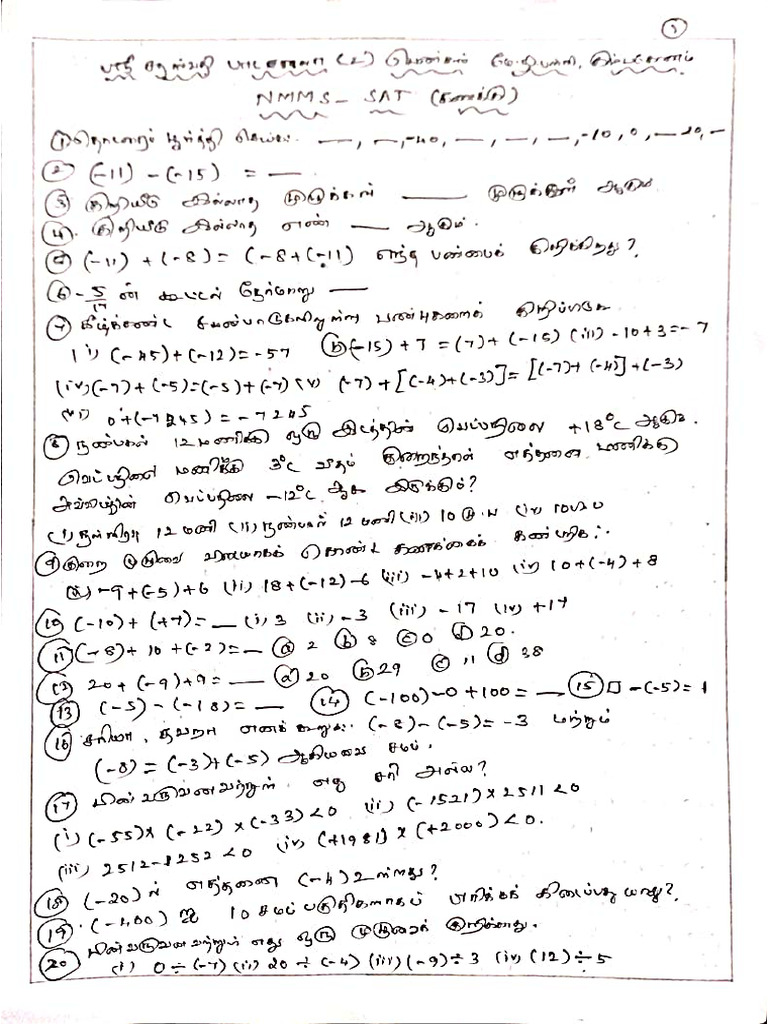 ①
ஸ்ரீ சரஸ்வதி பாடசாலை (2) பெண்கள் மே.நி.பள்ளி, கும்பகோணம்
NMMS - SAT (கணக்கு)
① தொடரைப் பூர்த்தி செய்க. —, —, -40, —, —, —, -10, 0, — 20, —
② (-11) - (-15) = —.
③ குறியீடு இல்லாத முழுக்கள் —— முழுக்கள் ஆகும்
④. குறியீடு இல்லாத எண் — ஆகும்.
⑤ (-11) + (-8) = (-8 + (-11) எந்த பண்பைக் குறிக்கிறது?
⑥ -5/17 ன் கூட்டல் நேர்மாறு ——
⑦ கீழ்க்கண்ட சமன்பாடுகளிலுள்ள பண்புகளைக் குறிப்பிடுக
(i) (-45)+(-12)=-57 (ii) (-15) + 7 = (7) + (-15) (iii) -10+3=-7
(iv) (-7) + (-5)=(-5)+(-7) (v) (-7) + [(-4)+(-3)] = [(-7)+(-4)] + (-3)
(vi) 0+(-7245) = -7245
⑧ நண்பகல் 12 மணிக்கு ஒரு இடத்தின் வெப்பநிலை +18°C ஆகும்.
வெப்பநிலை மணிக்கு 3°C வீதம் குறைந்தால் எத்தனை மணிக்கு
அவ்விடத்தின் வெப்பநிலை -12°C ஆக இருக்கும்?
(i) நள்ளிரவு 12 மணி (ii) நண்பகல் 12 மணி (iii) 10 மு.ப (iv) 10 பி.ப
⑨ குறை முழுவை விடையாகக் கொண்ட கணக்கைக் கண்டறிக:
(i) -9+(-5)+6 (ii) 18+(-12)-6 (iii) -4+2+10 (iv) 10+(-4)+8
⑩ (-10) + (+7) = — (i) 3 (ii) -3 (iii) -17 (iv) +17
⑪ (-8)+ 10 + (-2) = — ⓐ 2 ⓑ 8 ⓒ 0 ⓓ 20.
⑫ 20 + (-9)+9 = —— ⓐ 20 ⓑ 29 ⓒ 11 ⓓ 38
⑬ (-5) - (-18) = — ⑭ (-100)-0+100 = — ⑮ □ -(-5)= 1
⑯ சரியா, தவறா எனக் கூறுக. (-8)-(-5)=-3 மற்றும்
(-8) = (-3)+(-5) ஆகியவை சமம்.
⑰ பின்வருவனவற்றுள் எது சரி அல்ல?
(i) (-55)× (-22) × (-33) <0 (ii) (-1521)×2511 <0
(iii) 2512-1252 <0 (iv) (+1981) × (+2000) <0.
⑱ (-20) ல் எத்தனை (-4) உள்ளது?
⑲ (-400) ஐ 10 சமப் பகுதிகளாகப் பிரிக்கக் கிடைப்பது யாது?
⑳ பின்வருவனவற்றுள் எது ஒரு முழுவைக் குறிக்காது.
(i) 0 ÷ (-7) (ii) 20 ÷ (-4) (iii) (-9) ÷ 3 (iv) (12) ÷ 5